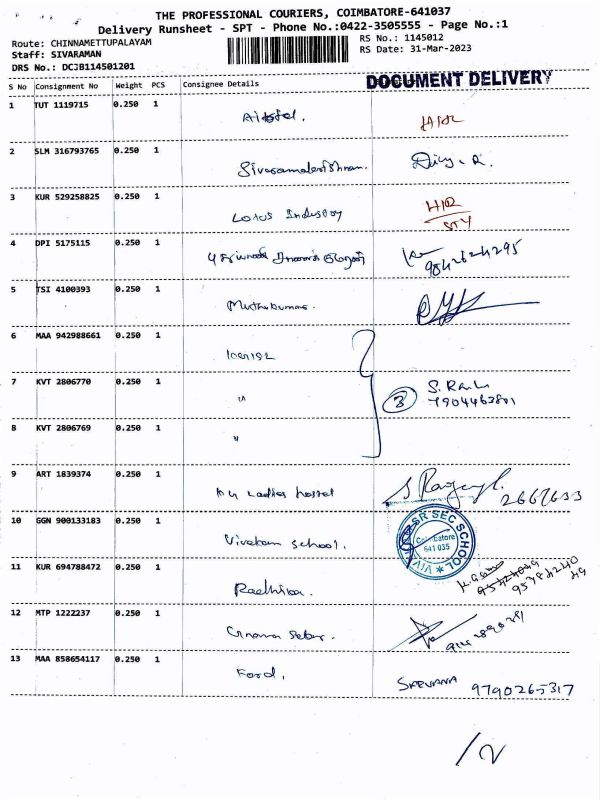 THE PROFESSIONAL COURIERS, COIMBATORE-641037
Delivery Runsheet - SPT - Phone No.:0422-3505555 - Page No.:1
Route: CHINNAMETTUPALAYAM
RS No.: 1145012
Staff: SIVARAMAN
RS Date: 31-Mar-2023
DRS No.: DCJB114501201
S No Consignment No Weight PCS Consignee Details DOCUMENT DELIVERY
1 TUT 1119715 0.250 1
2 SLM 316793765 0.250 1
3 KUR 529258825 0.250 1 Lotus Industry
4 DPI 5175115 0.250 1 9842624295
5 TSI 4100393 0.250 1 Muthukumar.
6 MAA 942988661 0.250 1
7 KVT 2806770 0.250 1 " 3
7904463801
8 KVT 2806769 0.250 1 "
9 ART 1839374 0.250 1 Ladies hostel
10 GGN 900133183 0.250 1 Vivekam School. SR SEC SCHOOL
Coimbatore
641 035
11 KUR 694788472 0.250 1 Radhika.
12 MTP 1222237 0.250 1
13 MAA 858654117 0.250 1 Ford, 9790265317